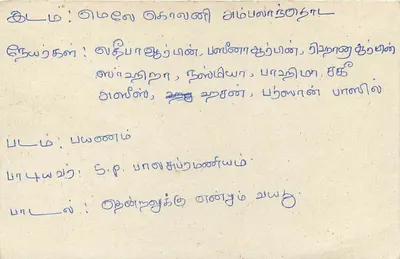 இடம் : மெலே கொலனி அம்பலாந்தொட
நேயர்கள் : லதீபாஆர்பின், பஸீனாஆர்பின், ரிஹானாஆர்பின்
ஸாஹிரா, நஸ்மியா, பாஹிமா, சகீ
அஸீஸ், ஹசன், பர்ஸான் பாஸில்
படம் : பயணம்
பாடியவர் : S.P. பாலசுப்ரமணியம்
பாடல் : தென்றலுக்கு என்றும் வயது